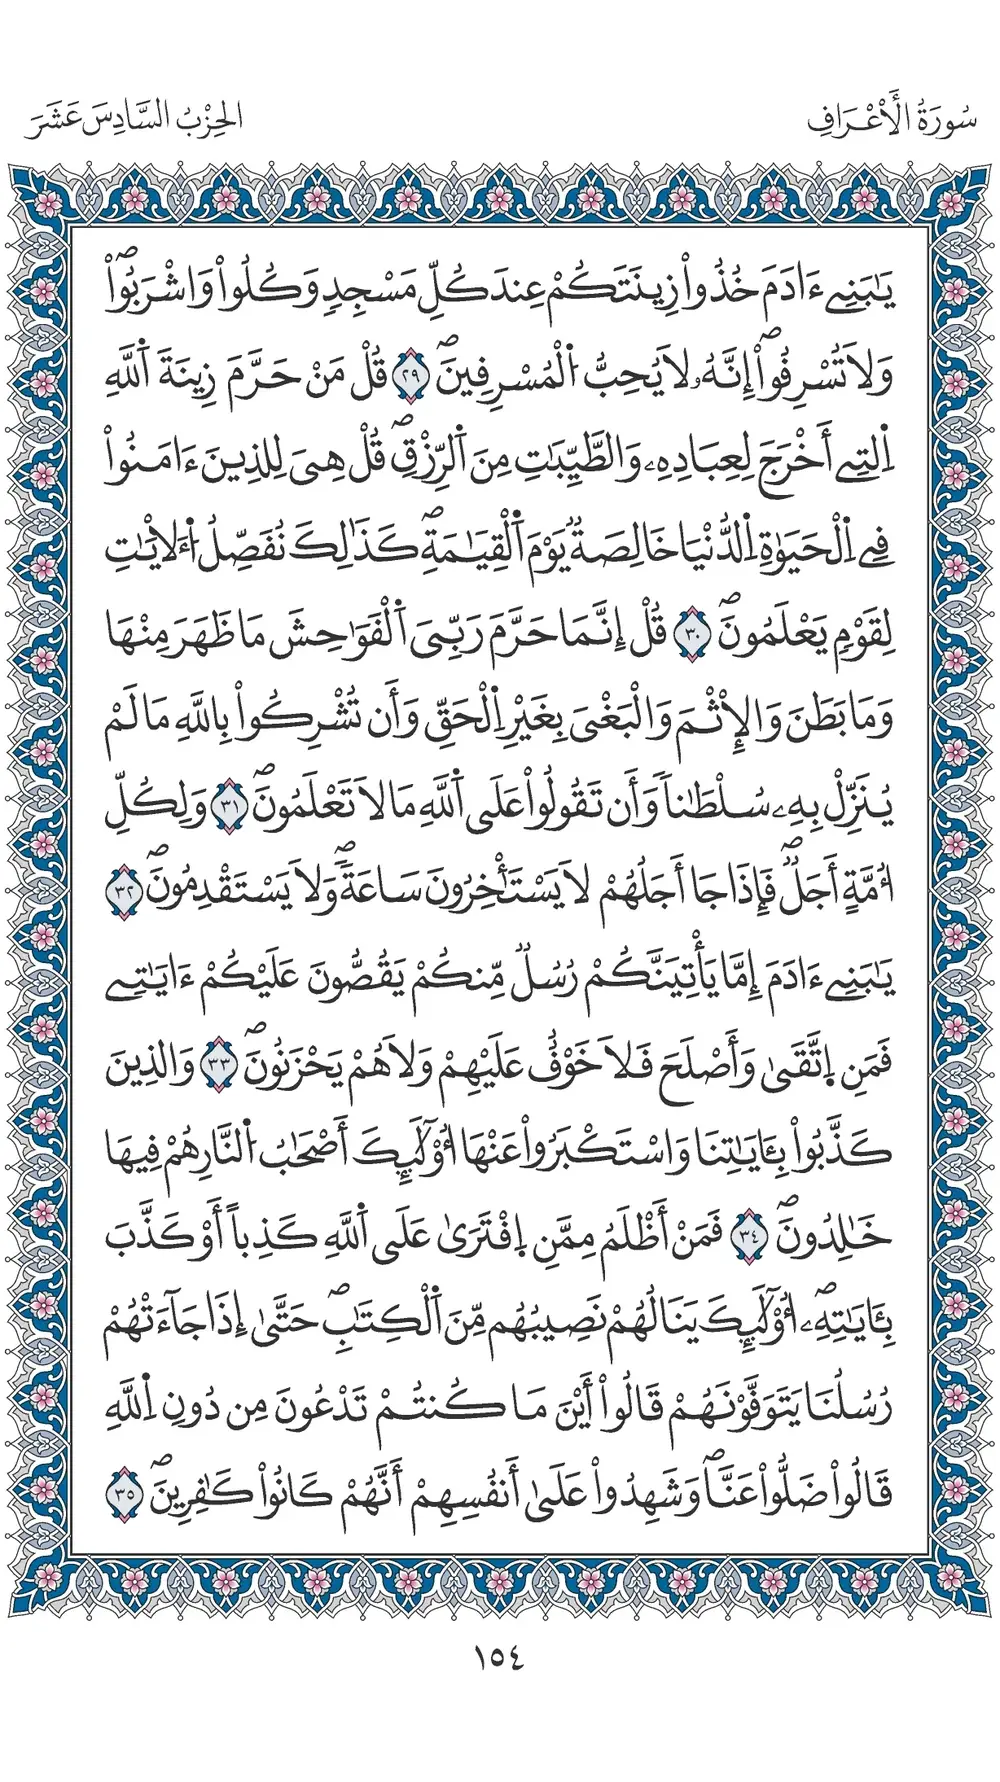 سُورَةُ الْأَعْرَافِ
الحِزْبُ السَّادِسَ عَشَرَ
يَٰبَنِےٓ ءَادَمَ خُذُواْ زِينَتَكُمْ عِندَ كُلِّ مَسْجِدٖ وَكُلُواْ وَاشْرَبُواْۖ
وَلَا تُسْرِفُوٓاْۖ إِنَّهُۥ لَا يُحِبُّ اُ۬لْمُسْرِفِينَۖ ٢٩ قُلْ مَنْ حَرَّمَ زِينَةَ اَ۬للَّهِ
اِ۬لتِےٓ أَخْرَجَ لِعِبَادِهِۦ وَالطَّيِّبَٰتِ مِنَ اَ۬لرِّزْقِۖ قُلْ هِيَ لِلذِينَ ءَامَنُواْ
فِے اِ۬لْحَيَوٰةِ اِ۬لدُّنْيَا خَالِصَةٞ يَوْمَ اَ۬لْقِيَٰمَةِۖ كَذَٰلِكَ نُفَصِّلُ اُ۬لَأيَٰتِ
لِقَوْمٖ يَعْلَمُونَۖ ٣٠ قُلْ إِنَّمَا حَرَّمَ رَبِّيَ اَ۬لْفَوَٰحِشَ مَا ظَهَرَ مِنْهَا
وَمَا بَطَنَ وَالِاثْمَ وَالْبَغْيَ بِغَيْرِ اِ۬لْحَقِّ وَأَن تُشْرِكُواْ بِاللَّهِ مَا لَمْ
يُنَزِّلْ بِهِۦ سُلْطَٰناٗ وَأَن تَقُولُواْ عَلَي اَ۬للَّهِ مَا لَا تَعْلَمُونَۖ ٣١ وَلِكُلِّ
أُمَّةٍ أَجَلٞۖ فَإِذَا جَا أَجَلُهُمْ لَا يَسْتَأْخِرُونَ سَاعَةٗۖ وَلَا يَسْتَقْدِمُونَۖ ٣٢
يَٰبَنِےٓ ءَادَمَ إِمَّا يَأْتِيَنَّكُمْ رُسُلٞ مِّنكُمْ يَقُصُّونَ عَلَيْكُمْ ءَايَٰتِے
فَمَنِ اِ۪تَّقَىٰ وَأَصْلَحَ فَلَا خَوْفٌ عَلَيْهِمْ وَلَا هُمْ يَحْزَنُونَۖ ٣٣ وَالذِينَ
كَذَّبُواْ بِـَٔايَٰتِنَا وَاسْتَكْبَرُواْ عَنْهَا أُوْلَٰٓئِكَ أَصْحَٰبُ اُ۬لنَّارِ هُمْ فِيهَا
خَٰلِدُونَۖ ٣٤ فَمَنْ أَظْلَمُ مِمَّنِ اِ۪فْتَرَىٰ عَلَي اَ۬للَّهِ كَذِباً أَوْ كَذَّبَ
بِـَٔايَٰتِهِۦٓۖ أُوْلَٰٓئِكَ يَنَالُهُمْ نَصِيبُهُم مِّنَ اَ۬لْكِتَٰبِۖ حَتَّىٰ إِذَا جَآءَتْهُمْ
رُسُلُنَا يَتَوَفَّوْنَهُمْ قَالُوٓاْ أَيْنَ مَا كُنتُمْ تَدْعُونَ مِن دُونِ اِ۬للَّهِ
قَالُواْ ضَلُّواْ عَنَّاۖ وَشَهِدُواْ عَلَىٰٓ أَنفُسِهِمْ أَنَّهُمْ كَانُواْ كَٰفِرِينَۖ ٣٥
١٥٤